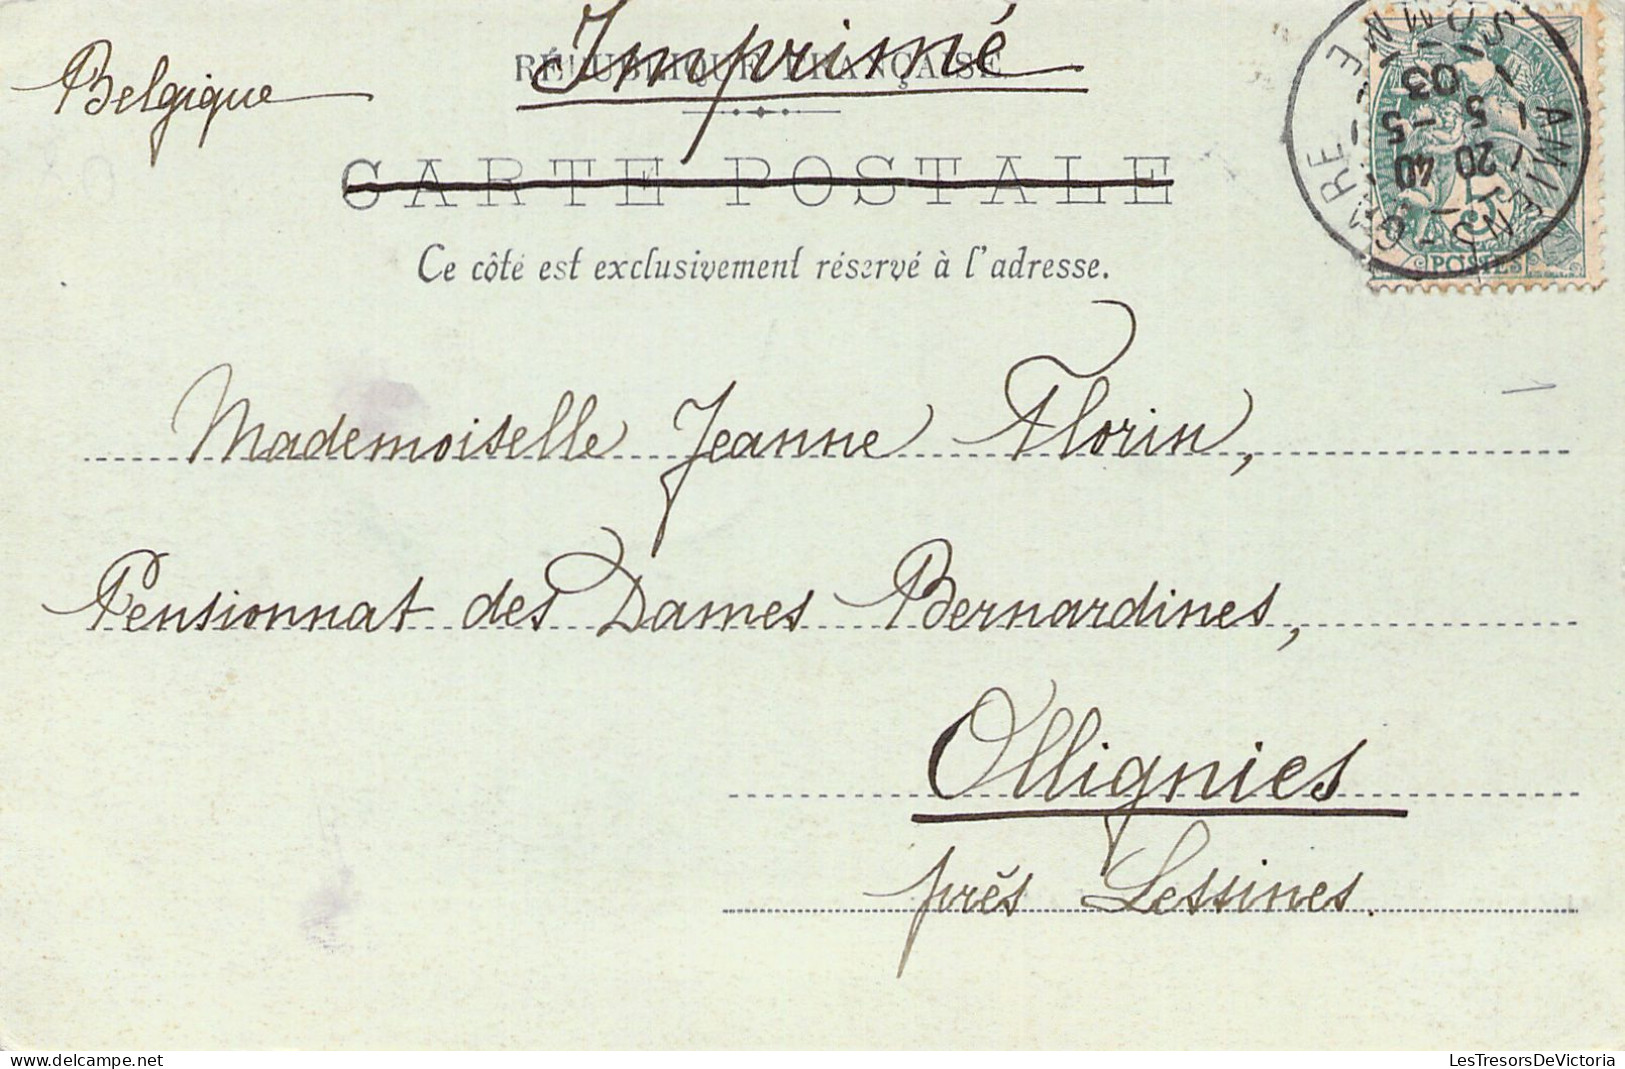 Belgique
Imprimé
RÉPUBLIQUE FRANÇAISE
CARTE POSTALE
Ce côté est exclusivement réservé à l'adresse.
AMIENS - GARE
SOMME
20 40
5 -5
03
5
POSTES
Mademoiselle Jeanne Florin,
Pensionnat des Dames Bernardines,
Ollignies
près Lessines.
LesTresorsDeVictoria
delcampe.net